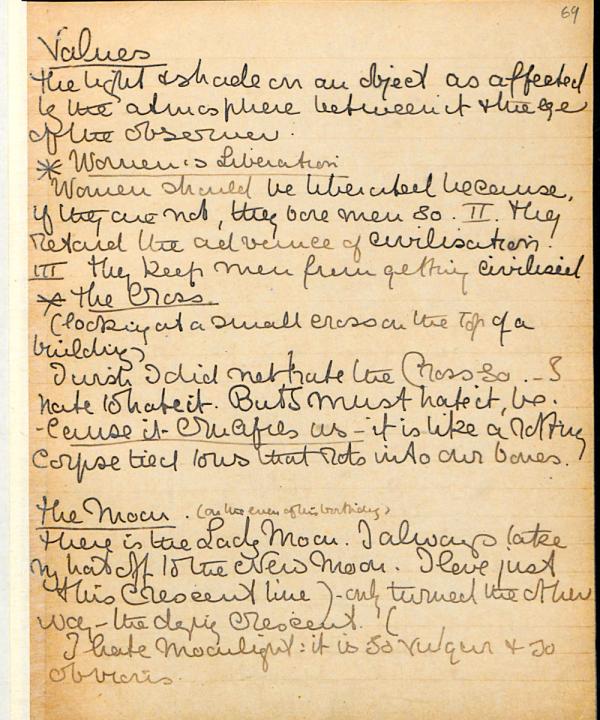 69
Values
The light & shade on an object as affected
by the atmosphere between it & the eye
of the observer.
* Women's Liberation
Women should be liberated because,
if they are not, they bore men so. II. they
retard the advance of civilisation.
III they keep men from getting civilised
* The Cross.
(looking at a small cross on the top of a
building)
I wish I did not hate the Cross so. - I
hate to hate it. But I must hate it, be-
-cause it crucifies us - it is like a rotting
corpse tied to us that rots into our bones.
The Moon. (on the even of his birthday)
There is the Lady Moon. I always take
my hat off to the New Moon. I love just
this Crescent line ) - only turned the other
way - the dying Crescent. (
I hate Moonlight: it is so vulgar & so
obvious.